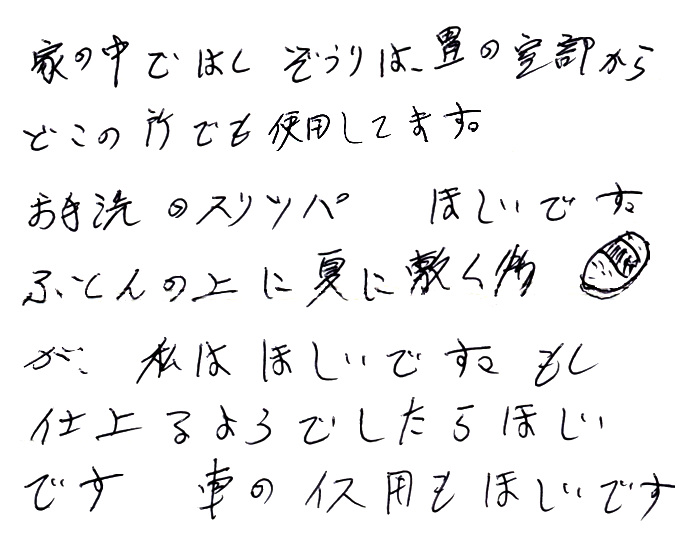 家の中ではし ぞうりは、畳の室部から
どこの所でも使用してます。
お手洗のスリッパ ほしいです。
ふとんの上に夏に敷く物
が、私はほしいです。もし
仕上るようでしたらほしい
です 車のイス用もほしいです